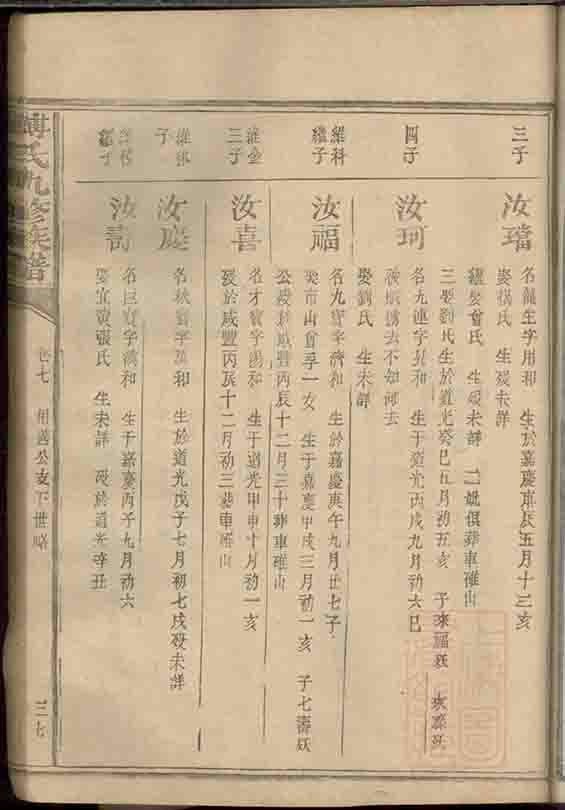 三子
汝璠
名龍生字用和 生於嘉慶庚辰五月十三亥
娶 氏 生歿未詳
繼娶曾氏 生歿未詳 二妣俱葬車碓山
三娶劉氏 生於道光癸巳五月初五亥 子來福
四子
汝珂
名九連字 和 生于道光丙戌九月初六巳
被 擄去不知何去
娶劉氏 生未詳
維科
繼子
汝福
名九寶字濟和 生於嘉慶庚午九月廿七子
娶市山曾孚一女 生于嘉慶甲戌三月初一亥 子七壽
公歿於咸豐丙辰十二月三十葬車碓山
維金
三子
汝喜
名才寶字陽和 生于道光甲申十月初一亥
歿於咸豐丙辰十二月初三葬車碓山
子
汝庭
名秋寶字 和 生於道光戊子七月初七戌歿未詳
繼子
汝壽
名臣寶字濱和 生于嘉慶丙子九月初六
娶宜黃張氏 生未詳 歿於道光辛丑
氏九修族譜
卷七
用善公支下世略
三七